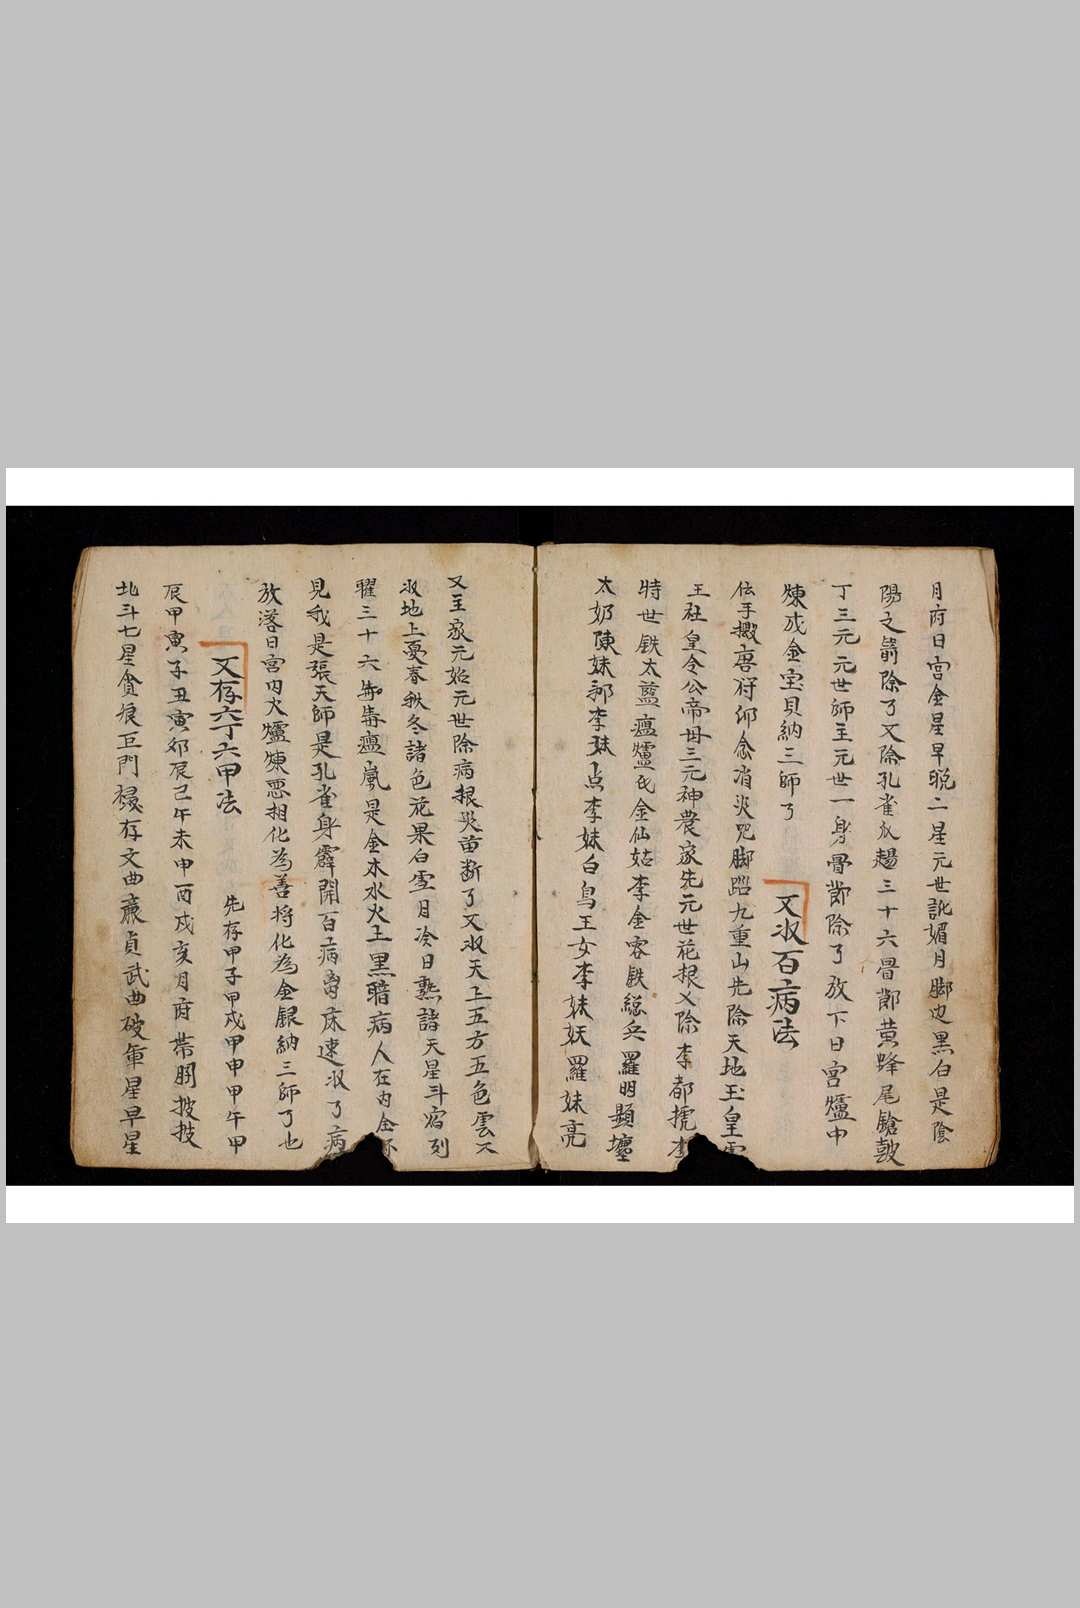 月府日宫金星早晩二星元世訛媚月脚边黒白是陰
陽之箭除了又除孔雀尖趐三十六骨节黄蜂尾鎗鼓
丁三元元世師主元世一身骨节除了放下日宫爐中
煉成金宝貝納三師了
又收百病法
伝手撥唐将仰念消災咒脚踏九重山先除天地玉皇
王社皇令公帝母三元神農家先元世花根又除李都
特世鉄太藍瘟爐氏金仙姑李金容鉄総兵羅明顕壇
太奶陳妹郭李妹点李妹白鳥王女李妹妖羅妹亮
又主家元始元世除病根災苗断了又収天上五方五色雲
收地上夏春秋冬諸色花果白雪月冷日熱諸天星斗宿列
曜三十六毒瘟嵐是金木水火土黒暗病人在内全
見我是張天師是孔雀身霹開百病床速收了病
放落日宫内火爐煉悪相化為善将化為金銀納三師了也
又存六丁六甲法
先存甲子甲戌甲申甲午甲
辰甲寅子丑寅夘辰巳午未申酉戌亥月府帯朋披披
北斗七星貪狼巨門禄存文曲廉貞武曲破軍星早星